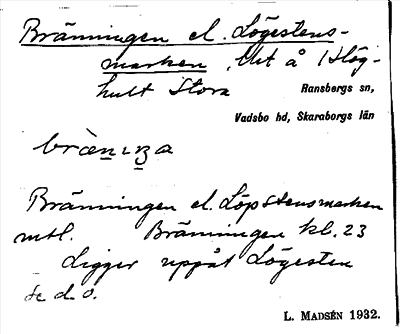 Bränningen el. Lögestens-
marken, Urt å 1 Hög-
hult Stora
Ransbergs sn,
Vadsbo hd, Skaraborgs län
brænıŋa
Bränningen el. Löpstensmarken
mtl. Bränningen kl. 23
Ligger uppåt Lögesten
se d. o.
L. MADSÉN 1932.